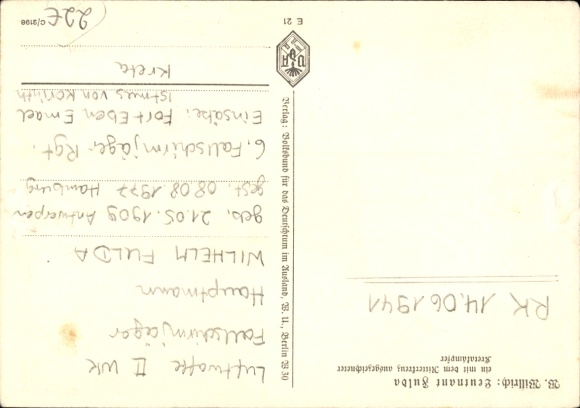 W. Willrich: Leutnant Fulda
ein mit dem Ritterkreuz ausgezeichneter
Kretakämpfer
RK 14.06 1941
Luftwaffe II WK
Fallschirmjäger
Hauptmann
WILHELM FULDA
geb. 21.05.1909 Antwerpen
gest. 08.08.1977 Hamburg
6. Fallschirmjäger Rgt.
Einsätze: Fort Eben Emael
Istmus von Korinth
Kreta
Verlag: Volksbund für das Deutschtum im Ausland, W. U., Berlin W 30
VDA
E 21
C/2198
22€